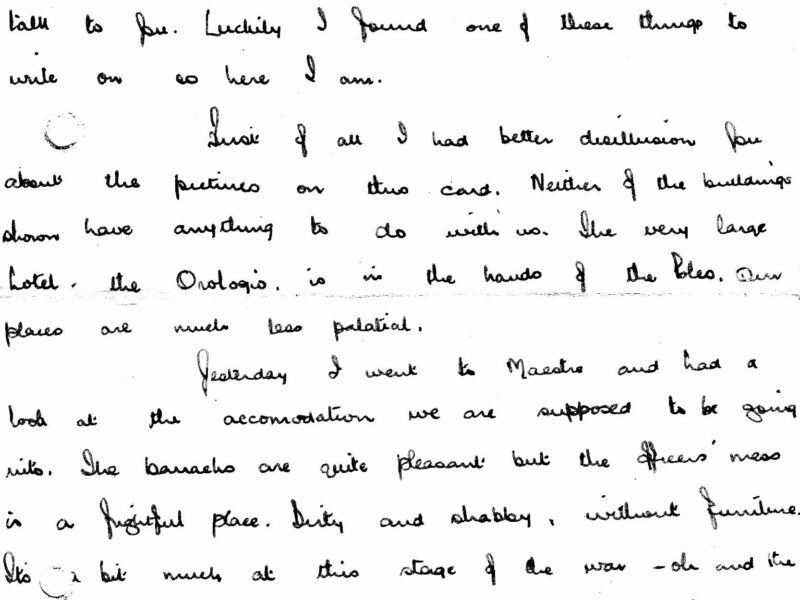 talk to you. Luckily I found one of these things to
write on so here I am.
First of all I had better disillusion you
about the pictures on this card. Neither of the buildings
shown have anything to do with us. The very large
hotel. the Orologio. is in the hands of the Poles. Our
places are much less palatial.
Yesterday I went to Maestre and had a
look at the accomodation we are supposed to be going
into. The barracks are quite pleasant but the officers' mess
is a frightful place. Dirty and shabby, without furniture.
Its a bit much at this stage of the war - oh and the